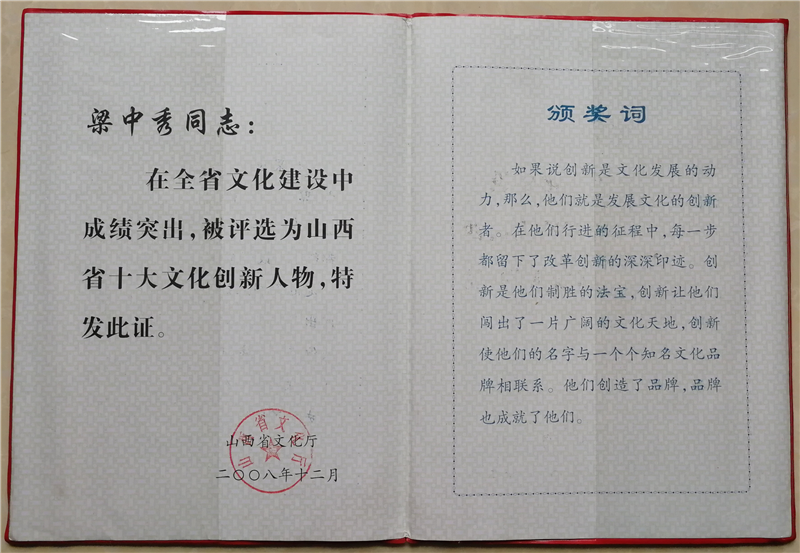 梁中秀同志：
在全省文化建设中
成绩突出，被评选为山西
省十大文化创新人物，特
发此证。
山西省文化厅
二〇〇八年十二月
颁奖词
如果说创新是文化发展的动
力，那么，他们就是发展文化的创新
者。在他们行进的征程中，每一步
都留下了改革创新的深深印迹。创
新是他们制胜的法宝，创新让他们
闯出了一片广阔的文化天地，创新
使他们的名字与一个个知名文化品
牌相联系。他们创造了品牌，品牌
也成就了他们。